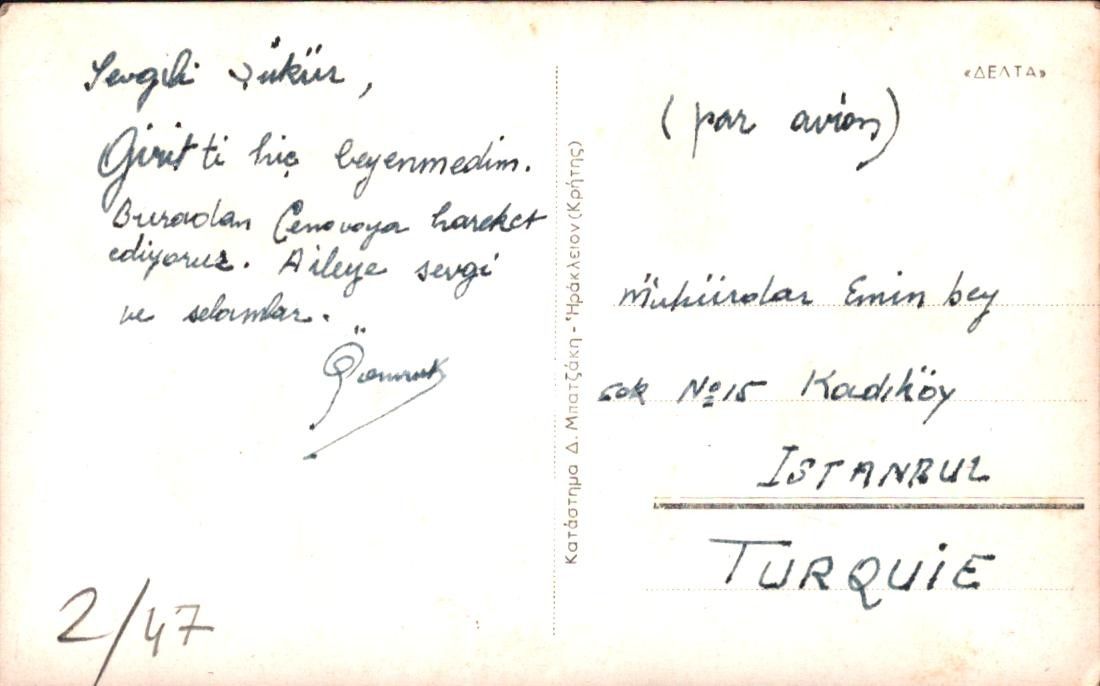 Sevgili Şükür,
Girit ti hiç beyenmedim.
Buradan Cenovoya hareket
ediyoruz. Aileye sevgi
ve selamlar.
2/47
Κατάστημα Δ. Μπατζάκη - Ἡράκλειον (Κρήτης)
«ΔΕΛΤΑ»
(par avion)
Mühürdar Emin bey
sok No 15 Kadıköy
ISTANBUL
TURQUiE